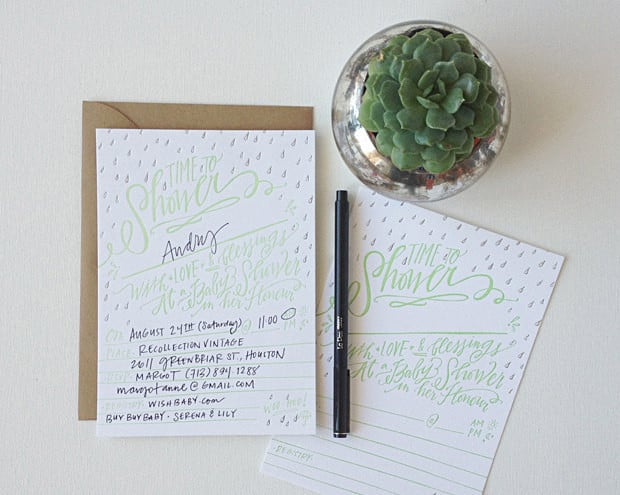 TIME TO
Shower
Andry
with • LOVE • & blessings
At a Baby Shower
in her Honour
ON: AUGUST 24TH (Saturday) @ 11:00 AM
PM
PLACE: RECOLLECTION VINTAGE
2611 GREENBRIAR ST, HOUSTON
RSVP: MARGOT (713) 894 1288
margotanne@GMAIL.COM
WISHBABY.com
BUY BUY BABY • SERENA & LILY
TIME TO
Shower
with • LOVE • & blessings
At a Baby Shower
in her Honour
@ AM
PM
REGISTRY:
Le Pen